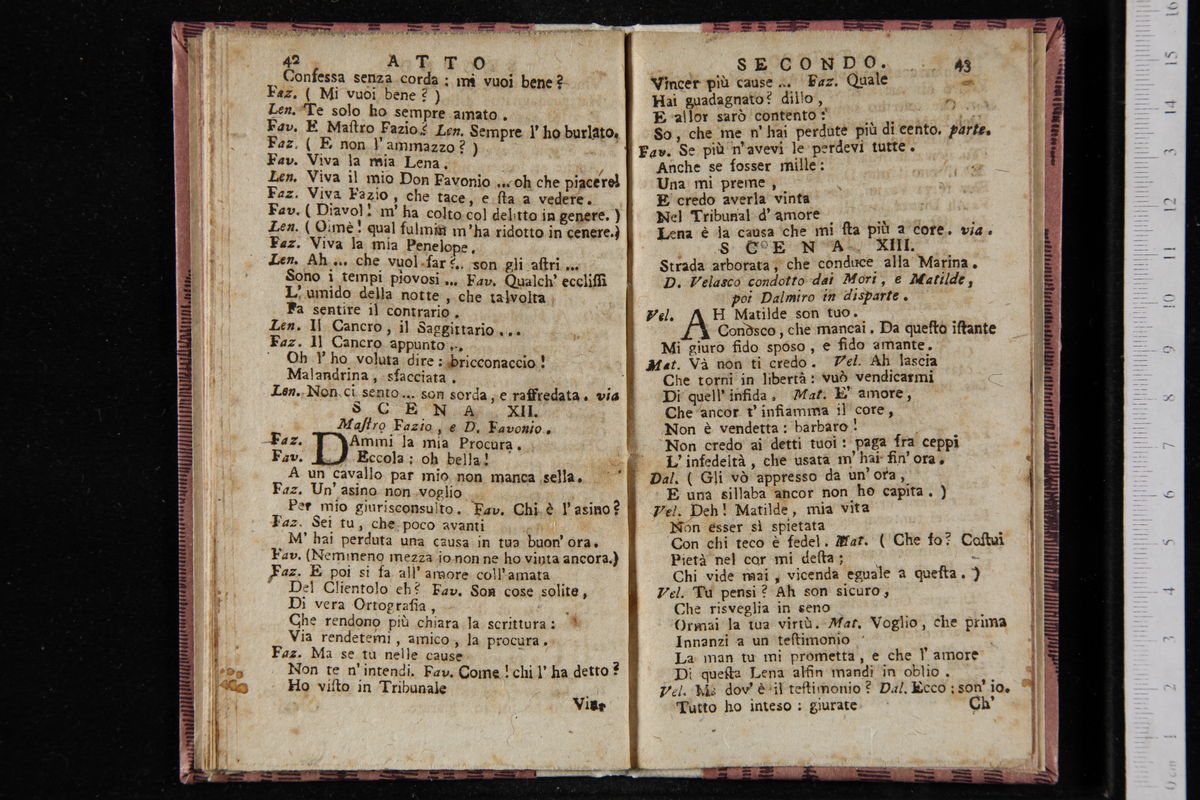 42 ATTO
Confessa senza corda: mi vuoi bene?
Faz. ( Mi vuoi bene? )
Len. Te solo ho sempre amato.
Fav. E Maſtro Fazio? Len. Sempre l'ho burlato.
Faz. ( E non l'ammazzo? )
Fav. Viva la mia Lena.
Len. Viva il mio Don Favonio ... oh che piacere!
Faz. Viva Fazio, che tace, e ſta a vedere.
Fav. ( Diavol! m'ha colto col delitto in genere. )
Len. ( Oimè! qual fulmin m'ha ridotto in cenere.)
Faz. Viva la mia Penelope.
Len. Ah ... che vuol far?.. son gli aſtri ...
Sono i tempi piovosi ... Fav. Qualch' eccliſſi
L'umido della notte, che talvolta
Fa sentire il contrario.
Len. Il Cancro, il Saggittario...
Faz. Il Cancro appunto ...
Oh l'ho voluta dire: bricconaccio!
Malandrina, sfacciata.
Len. Non ci sento... son sorda, e raffredata. via
SCENA XII.
Maſtro Fazio, e D. Favonio.
Faz. DAmmi la mia Procura.
Fav. Eccola: oh bella!
A un cavallo par mio non manca sella.
Faz. Un'asino non voglio
Per mio giurisconsulto. Fav. Chi è l'asino?
Faz. Sei tu, che poco avanti
M'hai perduta una causa in tua buon'ora.
Fav. (Nemmeno mezza io non ne ho vinta ancora.)
Faz. E poi si fa all'amore coll'amata
Del Clientolo eh? Fav. Son cose solite,
Di vera Ortografia,
Che rendono più chiara la scrittura:
Via rendetemi, amico, la procura.
Faz. Ma se tu nelle cause
Non te n'intendi. Fav. Come! chi l'ha detto?
Ho viſto in Tribunale
Vin-
SECONDO. 43
Vincer più cause ... Faz. Quale
Hai guadagnato? dillo,
E allor sarò contento:
So, che me n'hai perdute più di cento. parte.
Fav. Se più n'avevi le perdevi tutte.
Anche se fosser mille:
Una mi preme,
E credo averla vinta
Nel Tribunal d'amore
Lena è la causa che mi ſta più a core. via.
SCENA XIII.
Strada arborata, che conduce alla Marina.
D. Velasco condotto dai Mori, e Matilde,
poi Dalmiro in disparte.
Vel. AH Matilde son tuo.
Conosco, che mancai. Da queſto iſtante
Mi giuro fido sposo, e fido amante.
Mat. Và non ti credo. Vel. Ah lascia
Che torni in libertà: vuò vendicarmi
Di quell'infida. Mat. E' amore,
Che ancor t'infiamma il core,
Non è vendetta: barbaro!
Non credo ai detti tuoi: paga fra ceppi
L'infedeltà, che usata m'hai fin'ora.
Dal. ( Gli vò appresso da un'ora,
E una sillaba ancor non ho capita. )
Vel. Deh! Matilde, mia vita
Non esser sì spietata
Con chi teco è fedel. Mat. ( Che fo? Coſtui
Pietà nel cor mi deſta;
Chi vide mai, vicenda eguale a queſta. )
Vel. Tu pensi? Ah son sicuro,
Che risveglia in seno
Ormai la tua virtù. Mat. Voglio, che prima
Innanzi a un teſtimonio
La man tu mi prometta, e che l'amore
Di queſta Lena alfin mandi in oblio.
Vel. Ma dov'è il teſtimonio? Dal. Ecco: son'io.
Tutto ho inteso: giurate
Ch'